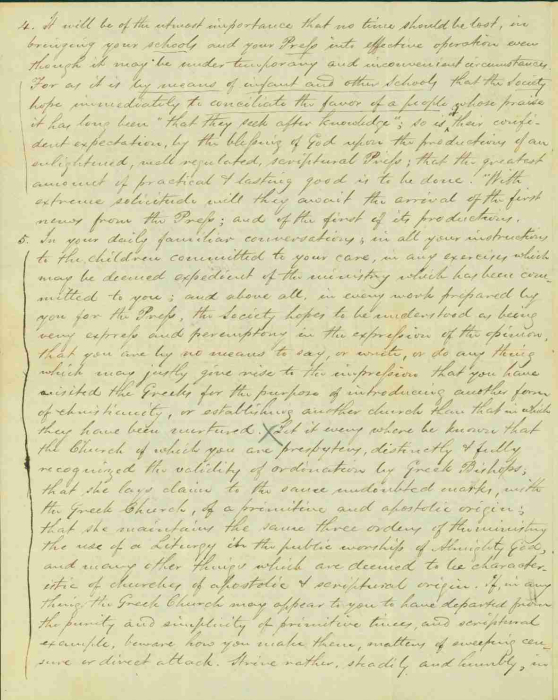 4. It will be of the utmost importance that no time should be lost, in
bringing your schools and your Press into effective operation even
though it may be under temporary and inconvenient circumstances.
For as it is by means of infant and other schools that the Society
hope immediately to conciliate the favor of a people, whose praise
it has long been "that they seek after knowledge"; so is it their confi-
dent expectation, by the blessing of God upon the productions of an
enlightened, well regulated, scriptural Press; that the greatest
amount of practical & lasting good is to be done. With
extreme solicitude will they await the arrival of the first
news from the Press; and of the first of its productions.
5. In your daily familiar conversations, in all your instructions
to the children committed to your care, in any exercises which
may be deemed expedient of the ministry which has been com-
mitted to you; and above all, in every work prepared by
you for the Press, the Society hopes to be understood as being
very express and peremptory in the expression of the opinion,
that you are by no means to say, or write, or do any thing
which may justly give rise to the impression that you have
visited the Greeks for the purpose of introducing another form
of christianity, or establishing another church than that in which
they have been nurtured. X Let it every where be known that
the Church of which you are presbyters, distinctly & fully
recognized the validity of ordination by Greek Bishops;
that she lays claim to the same undoubted marks, with
the Greek Church, of a primitive and apostolic origin;
that she maintains the same three orders of the ministry
the use of a Liturgy in the public worship of Almighty God,
and many other things which are deemed to be character-
istic of churches of apostolic & scriptural origin. If, in any
thing, the Greek Church may appear to you to have departed from
the purity and simplicity of primitive times, and scriptural
example, beware how you make them, matters of sweeping cen-
sure or direct attack. Strive rather, steadily and humbly, in